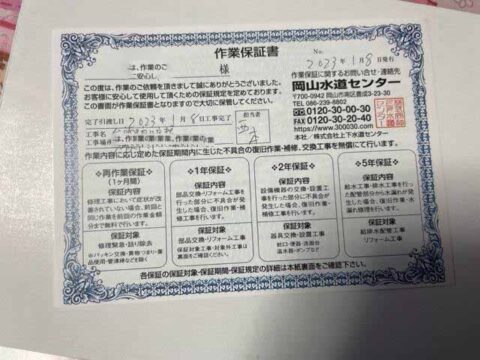 作業保証書
No.
2023年1月8日発行
様
は、作業のご
安心し
この度は、作業のご依頼を頂きまして誠にありがとうございました。
お客様に安心して使用して頂くための保証規定を定めております。
この書面が作業保証書となりますので大切に保管してください。
作業保証に関するお問い合せ・連絡先
岡山水道センター
〒700-0942 岡山市南区豊成3-23-30
TEL 086-239-8802
0120-30-00-30
FAX 0120-30-20-40
https://www.300030.com
本社／株式会社上下水道センター
完了引渡し日 2023年1月8日工事完了
担当者
工事名
工事場所
作業内容に応じ定めた保証期間内に生じた不具合の復旧作業・補修、交換工事を無償にて行います。
◇再作業保証◇
（1ヶ月間）
保証内容
修理工事において症状が改善されていない場合、前回と同じ作業を前回の作業金額分まで無料で行います。
保証対象
修理緊急・詰り除去
※パッキン交換・異物つまり・薬品使用・管清掃などを除く
◇1年保証◇
保証内容
部品交換・リフォーム工事を行った部分に不具合が発生した場合、復旧作業・補修工事を行います。
保証対象
部品交換・リフォーム工事
保証対象工事・対象外工事は裏面をご確認ください。
◇2年保証◇
保証内容
設備機器の交換・設置工事を行った部分に不具合が発生した場合、復旧作業・補修工事を行います。
保証対象
器具交換・設置工事
蛇口・便器・洗面台
温水器・ポンプなど
◇5年保証◇
保証内容
給水工事・排水工事を行った配管部分から水漏れが発生した場合、復旧作業・漏れ修理を行います。
保証対象
給排水配管工事
リフォーム工事
各保証の保証対象・保証期間・保証規定の詳細は本紙裏面をご確認下さい。